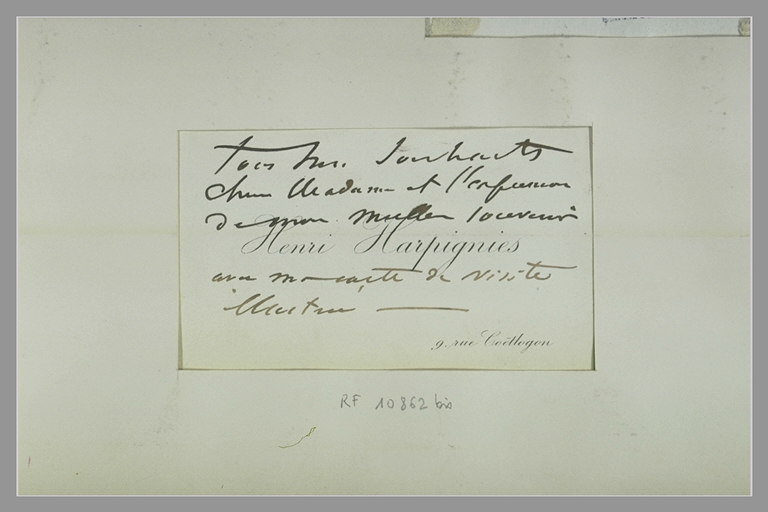 Tous mes souhaits
chère Madame et l'expression
de mon meilleur souvenir
Henri Harpignies
avec ma carte de visite
illustrée
9, rue Coëtlogon
RF 10862 bis